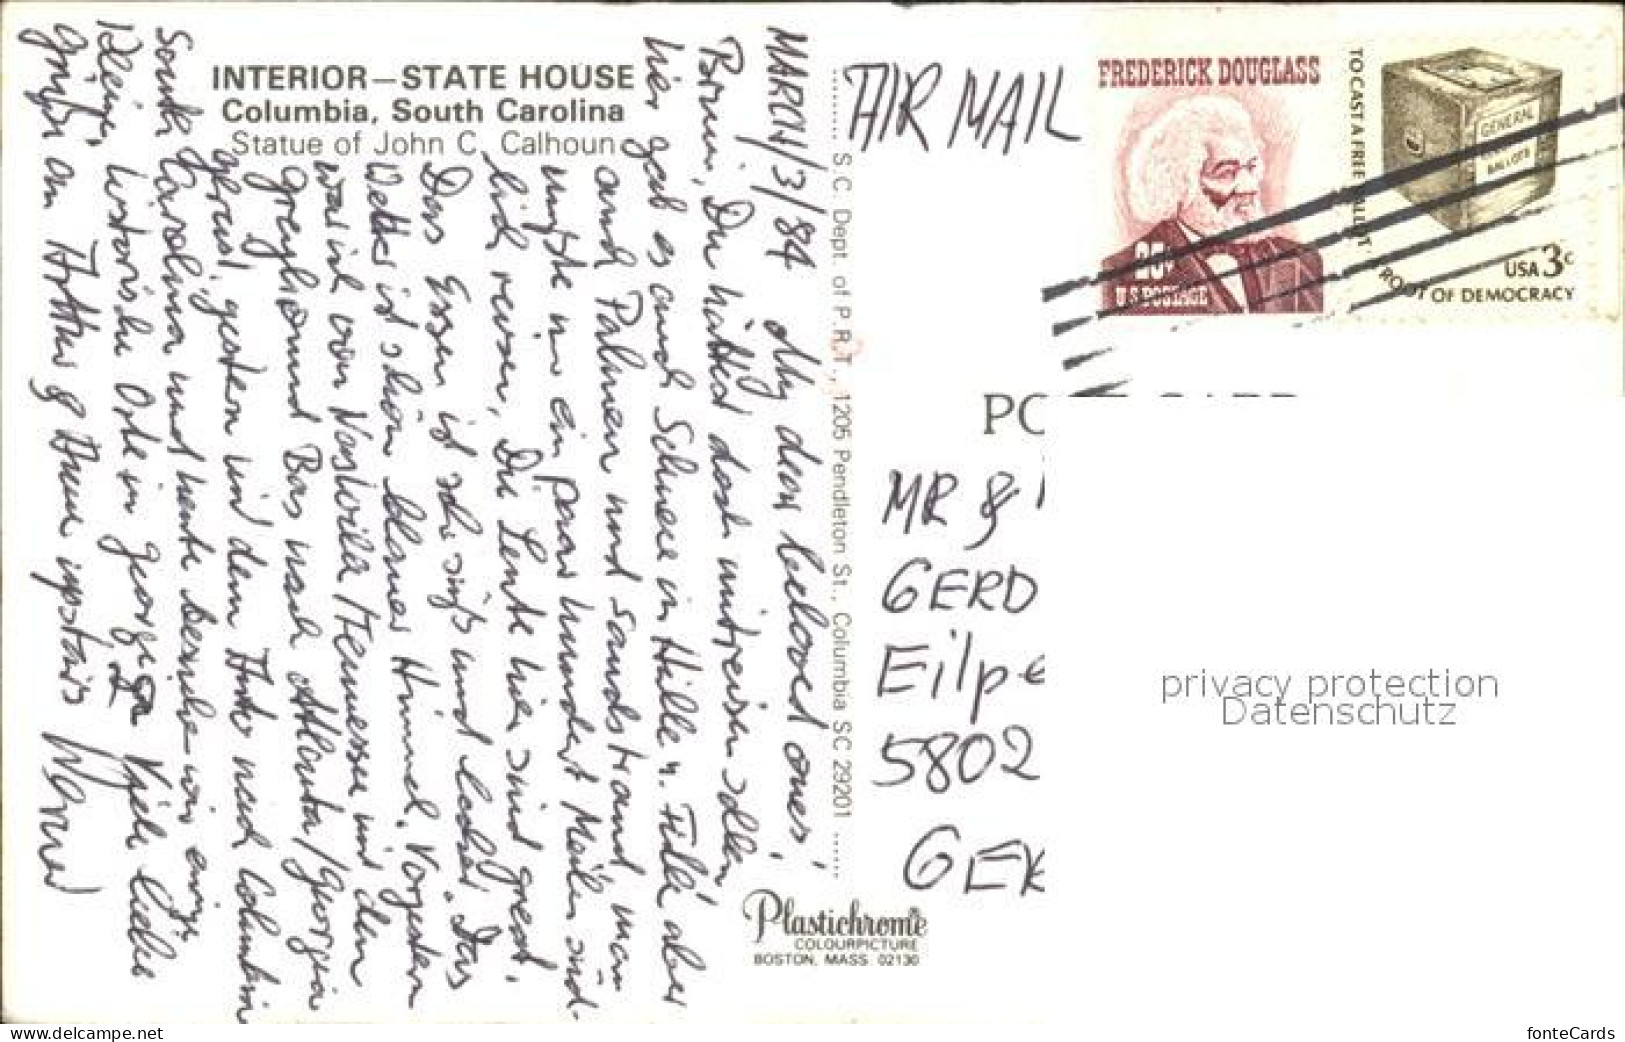 INTERIOR—STATE HOUSE
Columbia, South Carolina
Statue of John C. Calhoun
MARCH/3/84 My dear beloved ones!
Du hättest doch mitreisen sollen,
hier gab es auch Schnee in Hülle u. Fülle aber
auch Palmen und Sandstrand man
mußte nur ein paar hundert Meilen süd-
lich reisen, Die Leute hier sind great.
Das Essen ist sehr süß und lecker. Das
Wetter ist schön blauer Himmel. Vorgestern
war ich von Nashville/Tennessee mit dem
Greyhound Bus nach Atlanta/Georgia
gereist, gestern mit dem Auto nach Columbia
South Carolina und heute besuchen wir einige
kleine, historische Orte in Georgia Viele liebe
Grüße an upstairs Werner
S.C. Dept. of P.R.T., 1205 Pendleton St., Columbia SC 29201
AIR MAIL
FREDERICK DOUGLASS
25¢
U.S. POSTAGE
TO CAST A FREE BALLOT
ROOT OF DEMOCRACY
GENERAL
BALLOTS
USA 3c
MR &
GERD
Eilpe
5802
GER
Plastichrome®
COLOURPICTURE
BOSTON, MASS. 02130
privacy protection
Datenschutz
www.delcampe.net
fonteCards